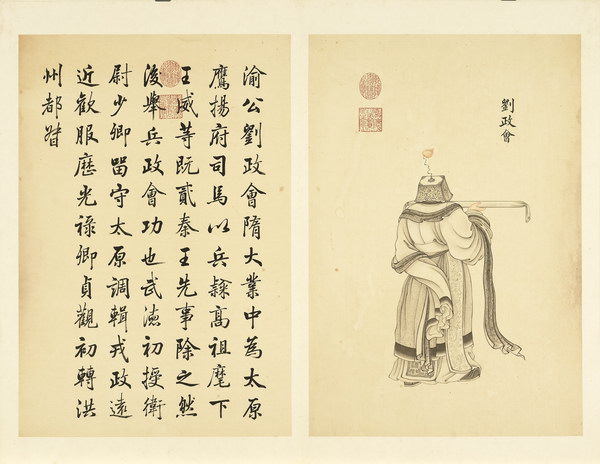 劉政會
渝公劉政會隋大業中為太原
鷹揚府司馬以兵隸高祖麾下
王威等既貳秦王先事除之然
後舉兵政會功也武德初授衛
尉少卿留守太原調輯戎政遠
近歡服歷光祿卿貞觀初轉洪
州都督